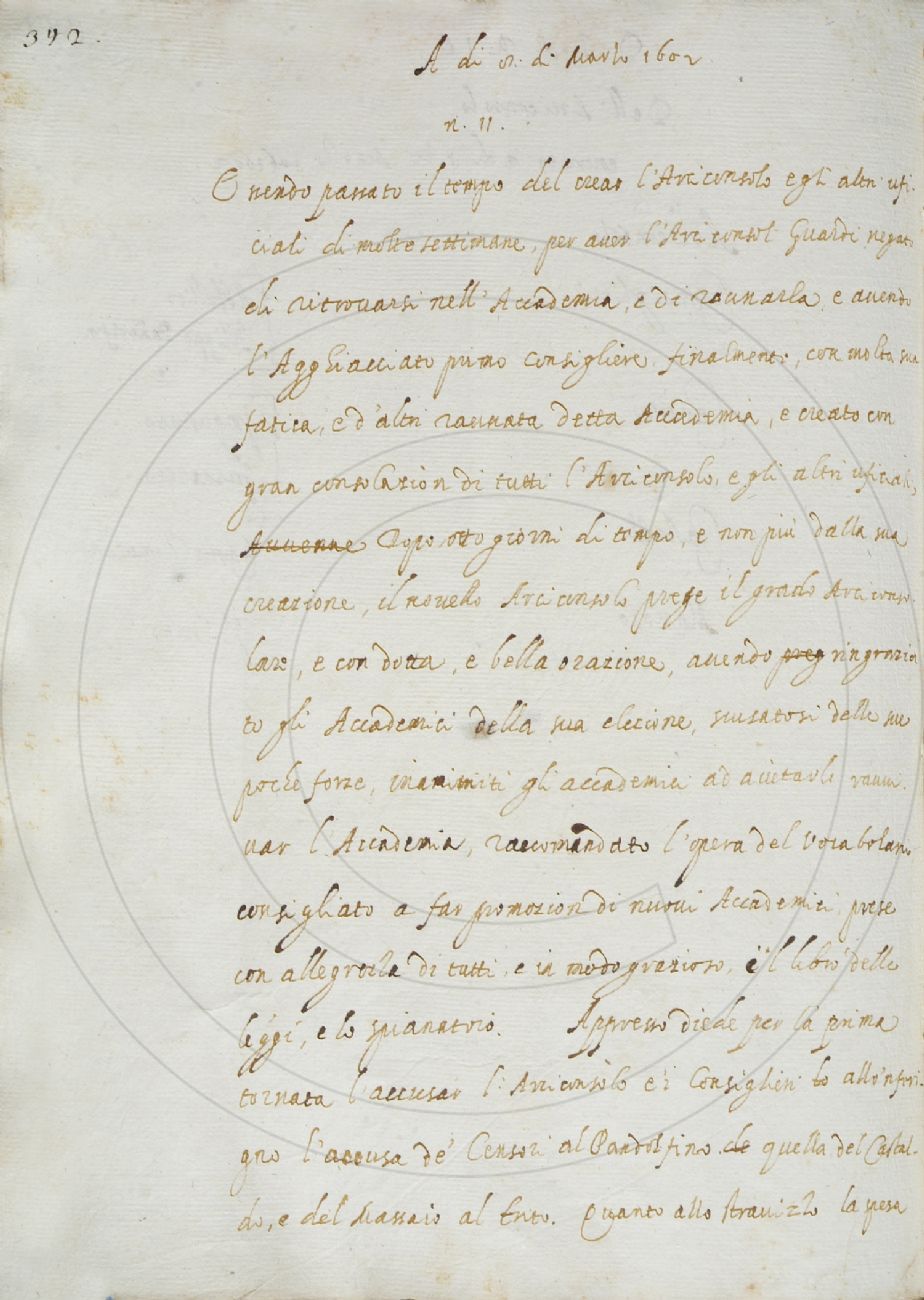 392.
A di 8. di Marzo 1602
n. 11.
Essendo passato il tempo del crear l'Arciconsolo e gli altri ufi-
ciali di molte settimane, per aver l'Arciconsol Guardi negato
di ritrouarsi nell'Accademia, e di raunarla, e auendo
l'Agghiacciato primo Consigliere finalmente, con molta sua
fatica, e d'altri raunata detta Accademia, e creato con
gran consolazion di tutti l'Arciconsolo, e gli altri uficiali,
Auuenne Dopo otto giorni di tempo, e non più dalla sua
creazione, il nouello Arciconsolo prese il grado Arciconso-
lare, e con dotta, e bella orazione, auendo preg ringrazia
to gli Accademici della sua elezione, scusatosi delle sue
poche forze, inanimiti gli accademici ad aiutarlo rauui-
uar l'Accademia, raccomandato l'opera del Vocabolario
consigliato a far promozion di nuoui Accademici, prese
con allegrezza di tutti, e in modo grazioso, e'l libro delle
leggi, e lo spianatoio. Appresso diede per la prima
tornata l'accusar l'Arciconsolo e i Consiglieri to allo'nferi-
gno l'accusa de' Censori al Pandolfino. de quella del Castal-
do, e del Massaio al Trito. Quanto allo strauizzo la spesa